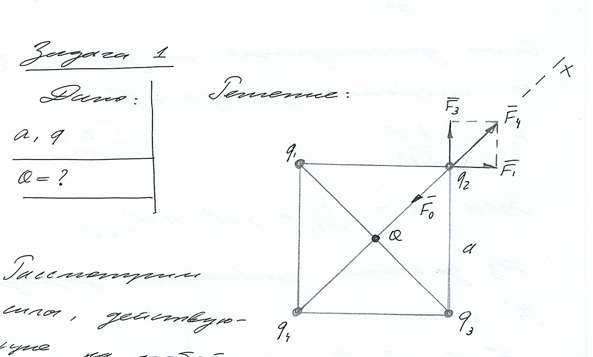 Задача 1
Дано:
a, q
Q = ?
Решение:
x
F̅₃
F̅₄
q₁
q₂
F̅₁
F̅₀
Q
a
q₄
q₃
Рассмотрим
силы, действую-
щие на